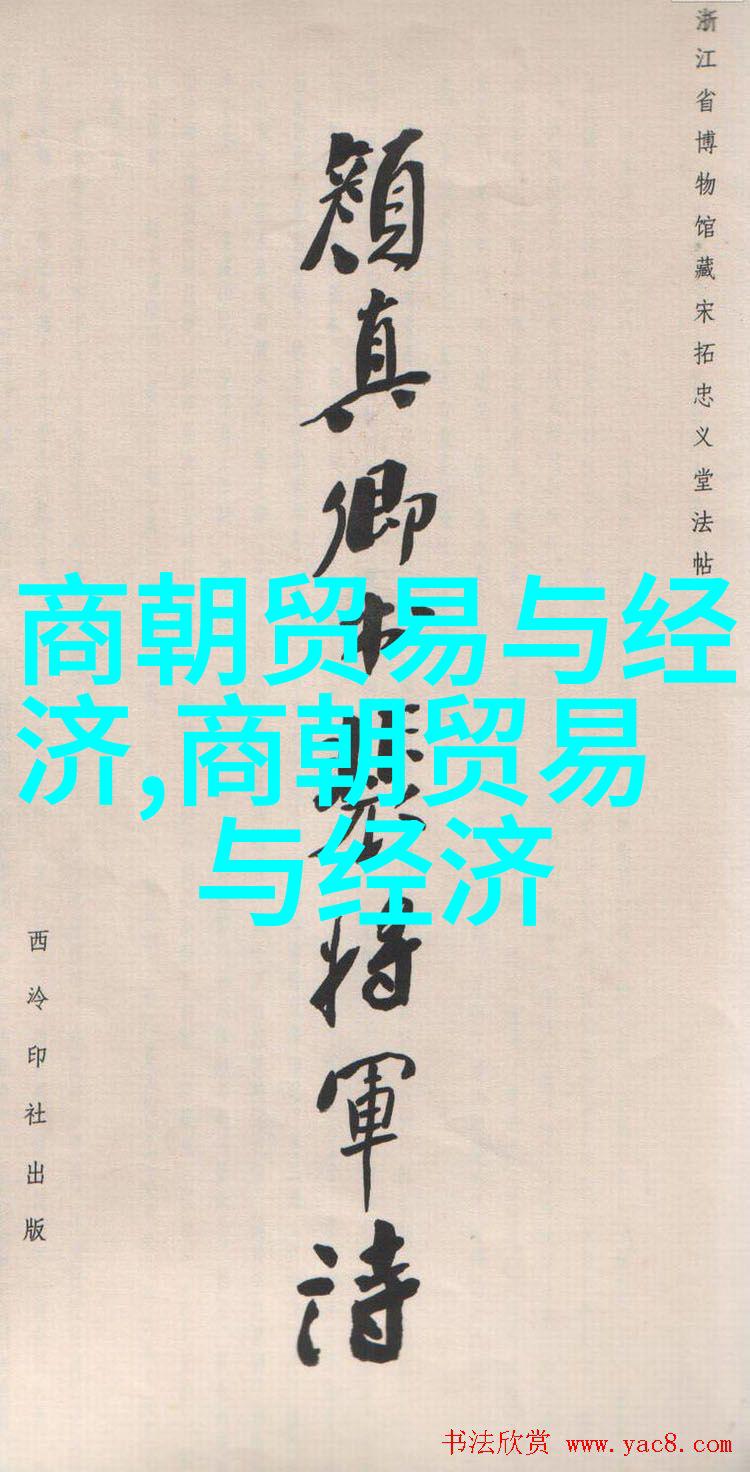 浙江省博物馆藏宋拓忠义堂法帖
顔真卿书裴将軍詩
西泠印社出版
商朝贸易与经
济,商朝贸易
与经济
书法欣赏 www.yac8.com